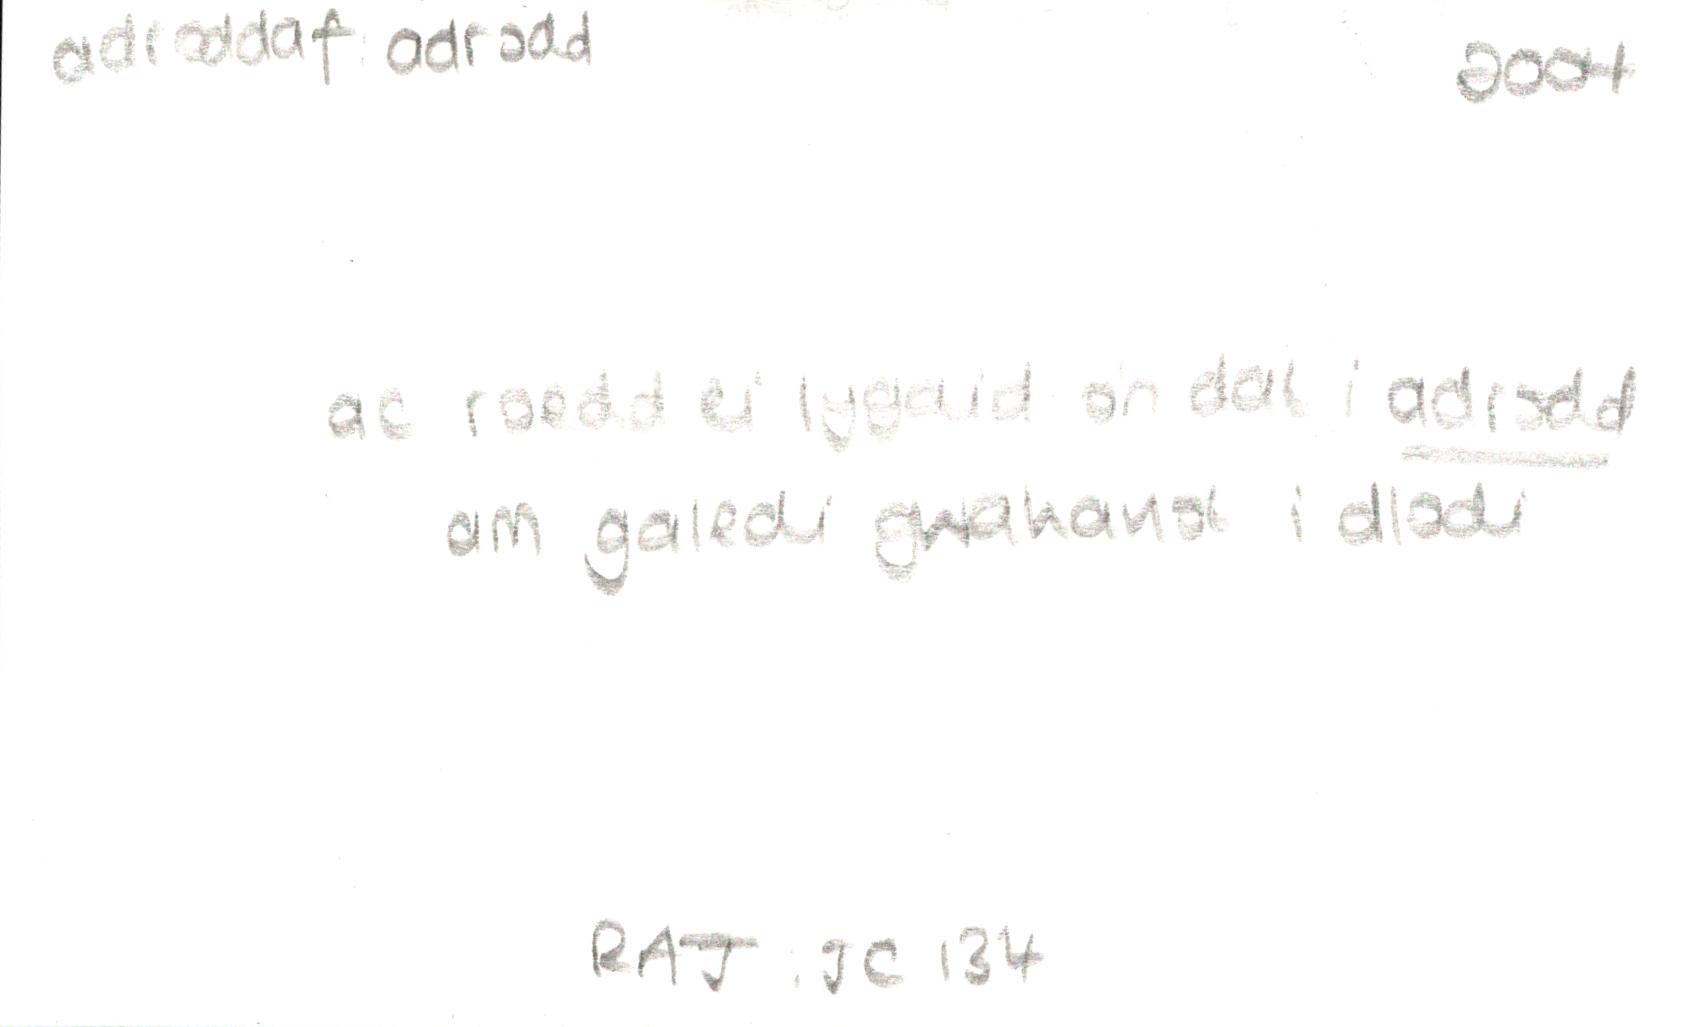 adroddaf: adrodd 2004
ac roedd ei lygaid on dal i adrodd
am galedi gwahanol i dlodi
RAJ: JC 134